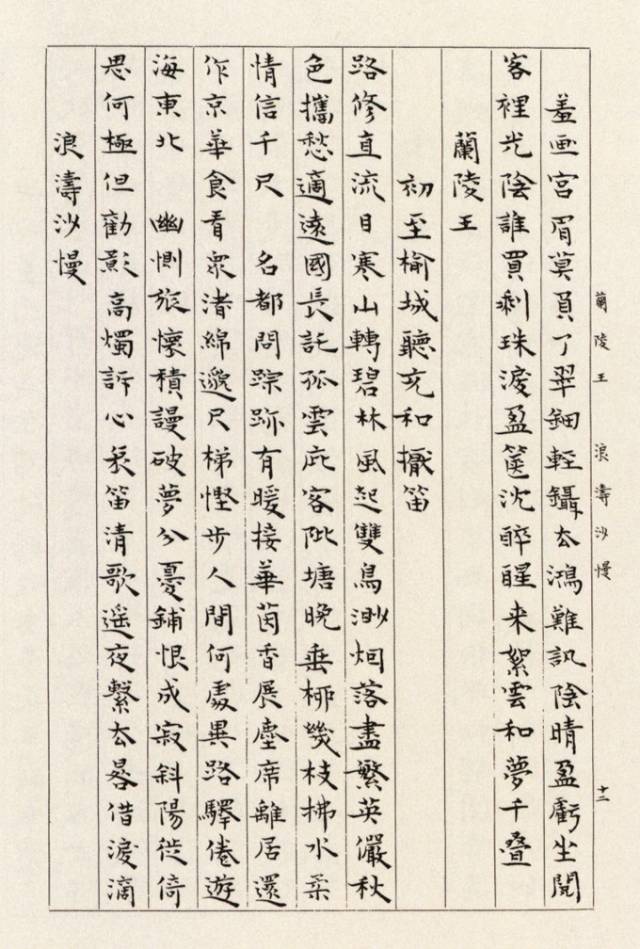 蘭陵王 浪濤沙慢 十二
羞画宮眉莫負了翠鈿輕鑷去鴻難訊陰晴盈虧坐閱
客裡光陰誰買剩珠淚盈篋沈醉醒来絮雲和夢千疊
蘭陵王
初至榆城聽充和擫笛
路修直流目寒山轉碧林風起雙鳥渺烟落盡繁英儼秋
色攜愁適遠國長託孤雲庇客陂塘晚垂柳幾枝拂水柔
情信千尺 名都問踪跡有暖接華茵香展塵席離居還
作京華食看眾渚綿邈尺梯慳步人間何處異路驛倦遊
海東北 幽惻旅懷積謾破夢分憂鋪恨成寂斜陽徙倚
思何極但勸影高燭訴心哀笛清歌遥夜繫去晷借淚滴
浪濤沙慢